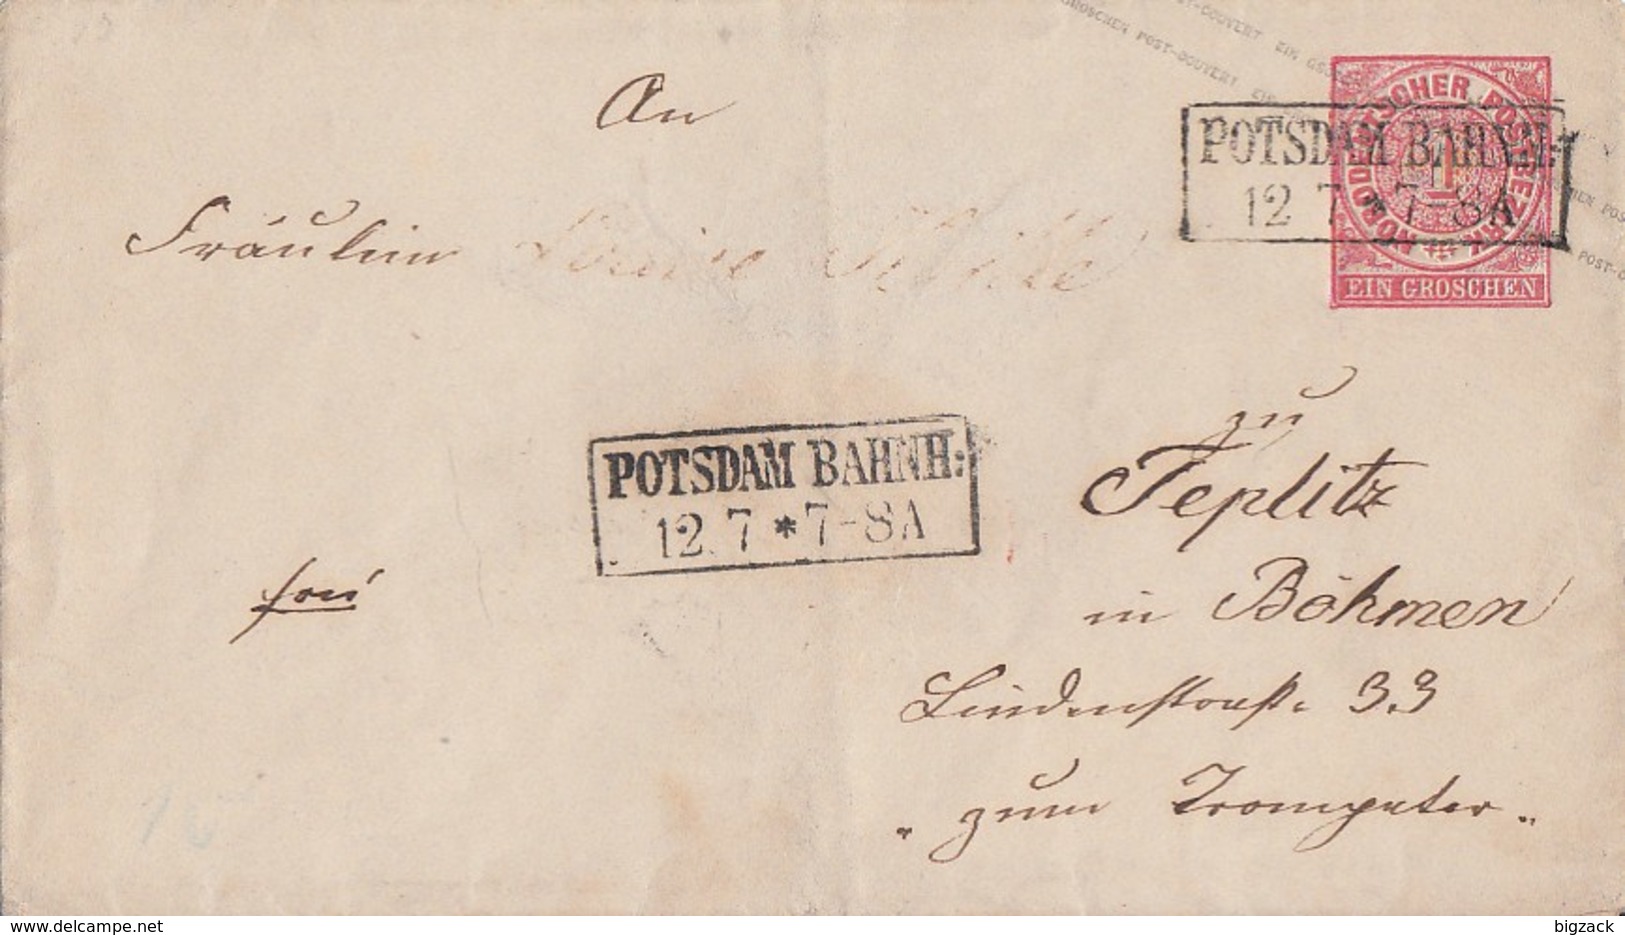 POST-COUVERT EIN GROSCHEN
GROSCHEN POST-COUVERT EIN
NORDDEUTSCHER POSTBEZIRK
1
EIN GROSCHEN
POTSDAM BAHNH:
12 7 * 7-8A
An
Fräulein Louise
zu
Teplitz
in Böhmen
Lindenstraße 33
"zum Trompeter"
POTSDAM BAHNH:
12. 7 * 7-8A
frei
delcampe.net
bigzack